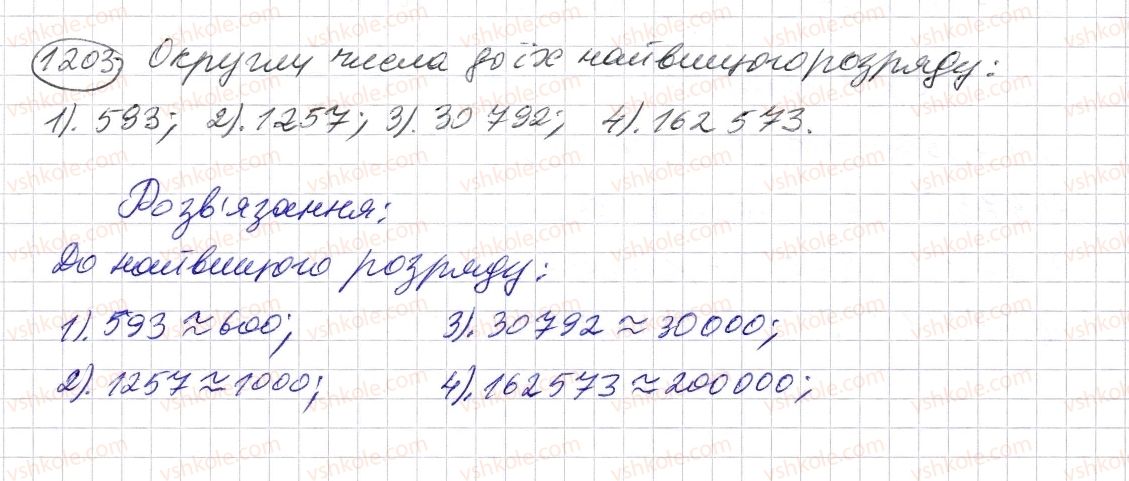 1203. Округли числа до їх найвищого розряду:
1). 593; 2). 1257; 3). 30 792; 4). 162 573.
Розв'язання:
До найвищого розряду:
1). 593 ≈ 600; 3). 30792 ≈ 30000;
2). 1257 ≈ 1000; 4). 162573 ≈ 200000;
vshkole.com